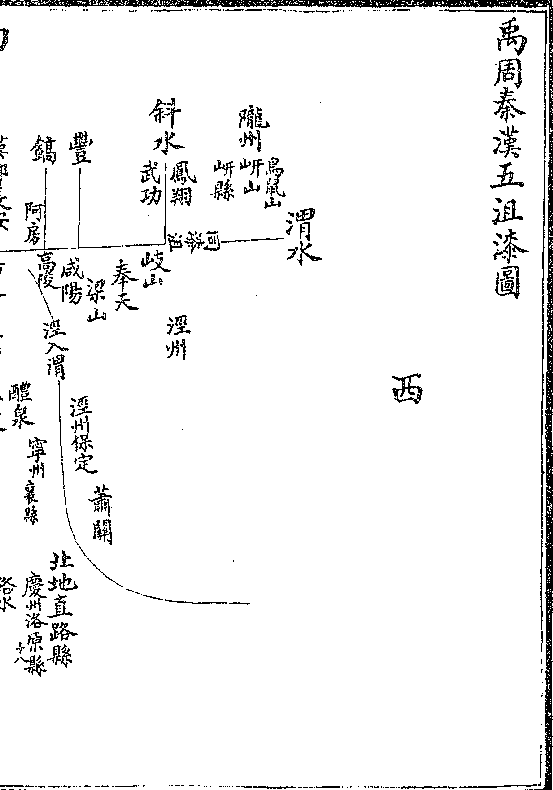 禹周秦漢五沮漆圖
西
渭水
隴州
岍山
鳥鼠山
岍縣
斜水
鳳翔
武功
豐
鎬
阿房
岐山
奉天
梁山
咸陽
高陵
涇州
涇入渭
醴泉
涇州保定
寧州襄縣
蕭關
北地直路縣
慶州洛原縣
十八
洛水